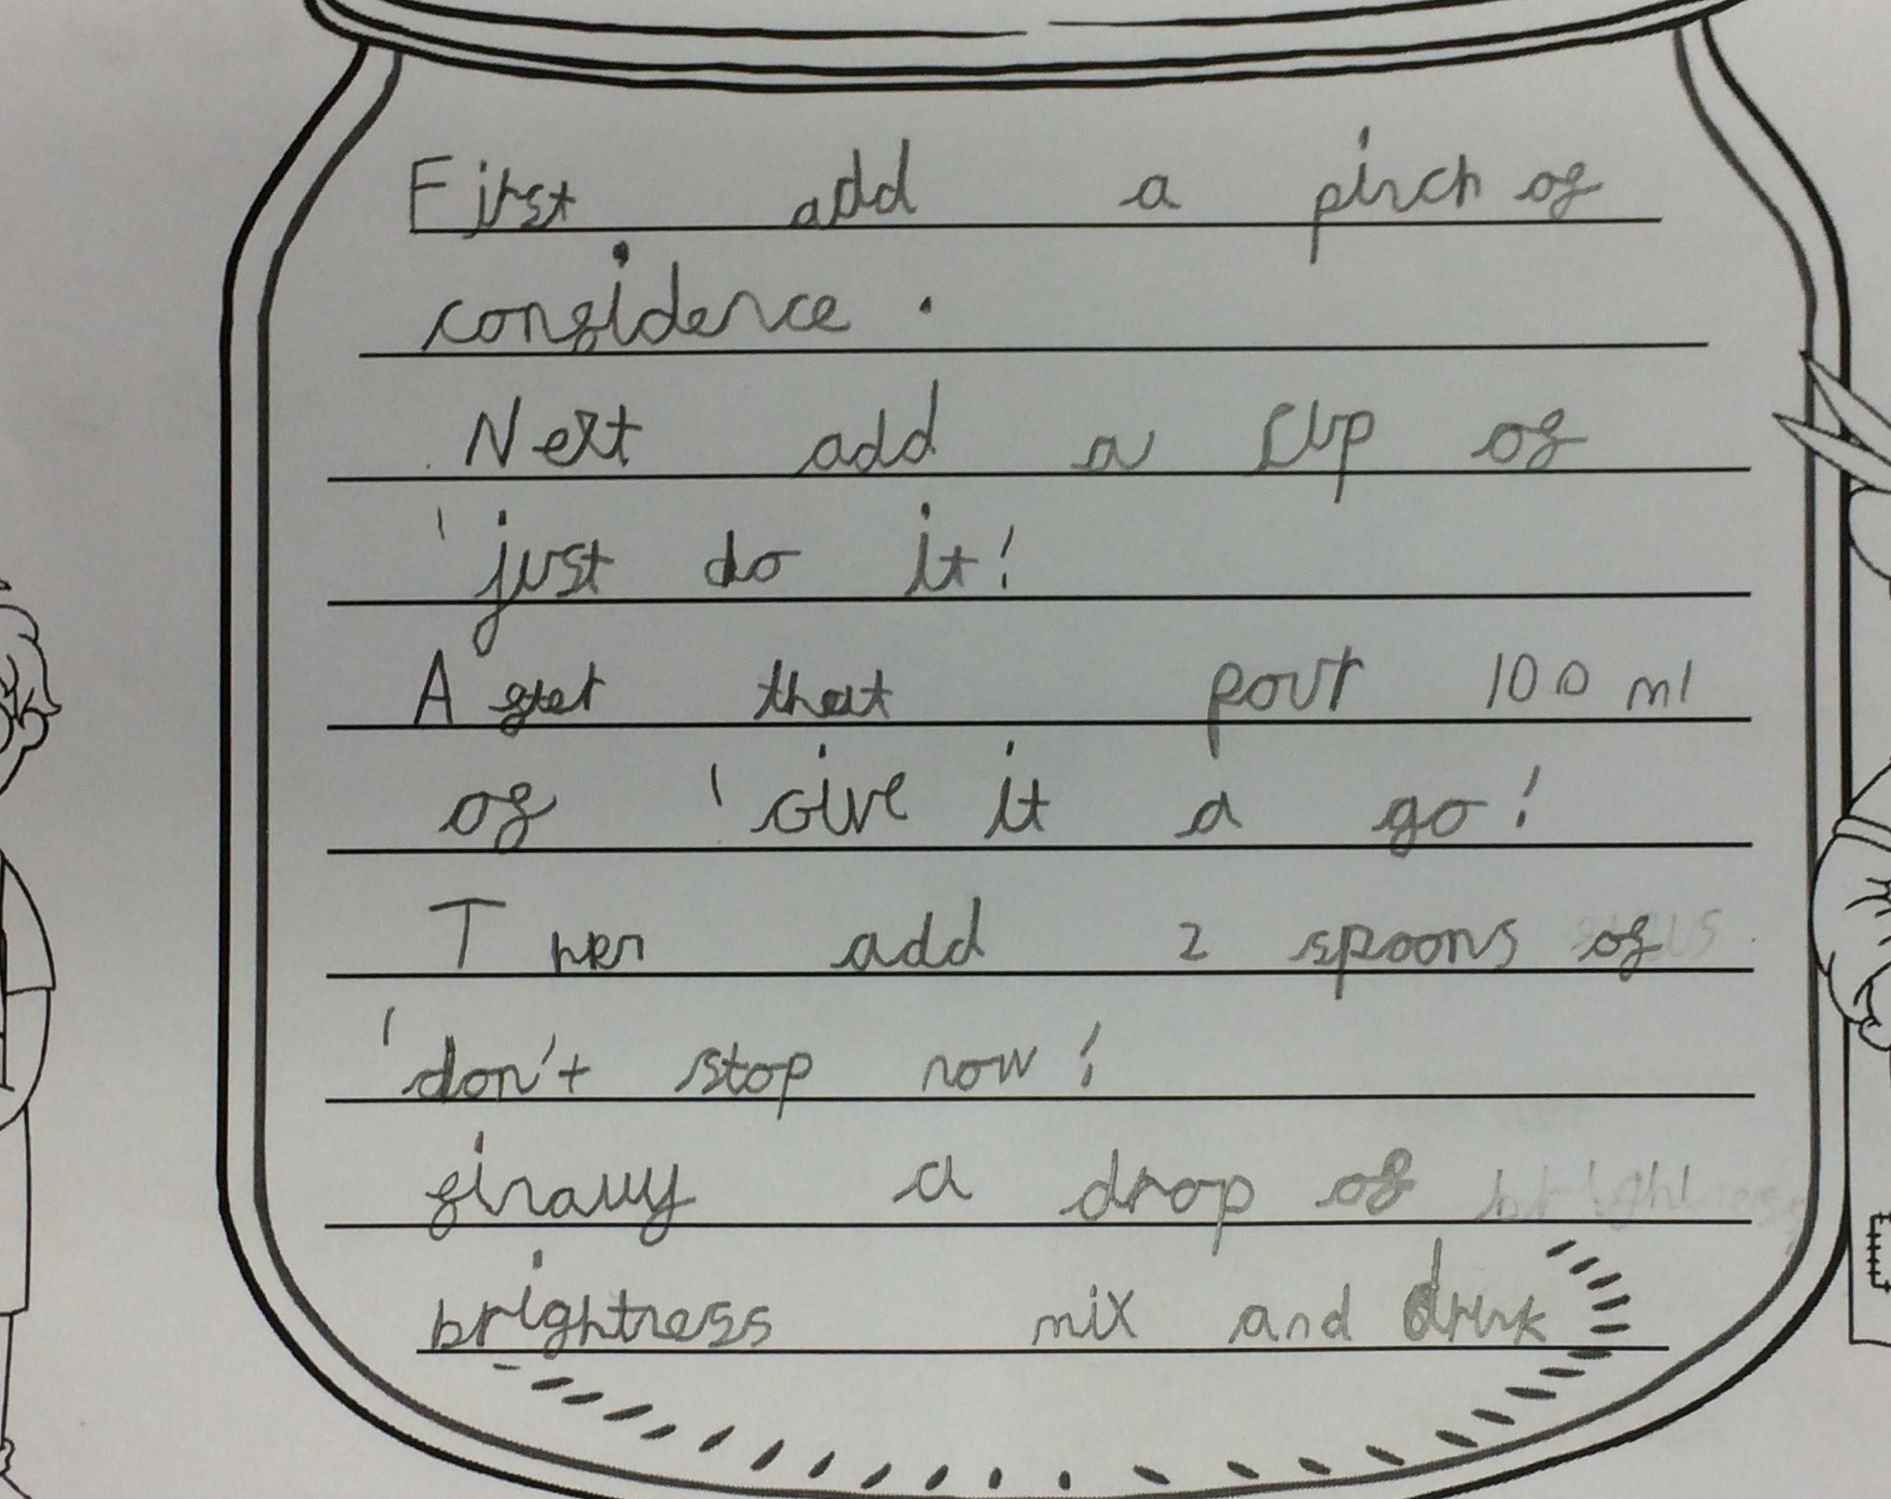 First add a pinch of
confidence.
Next add a cup of
'just do it!
After that pour 100 ml
of 'Give it a go!
Then add 2 spoons of
'don't stop now!
finally a drop of
brightness mix and drink